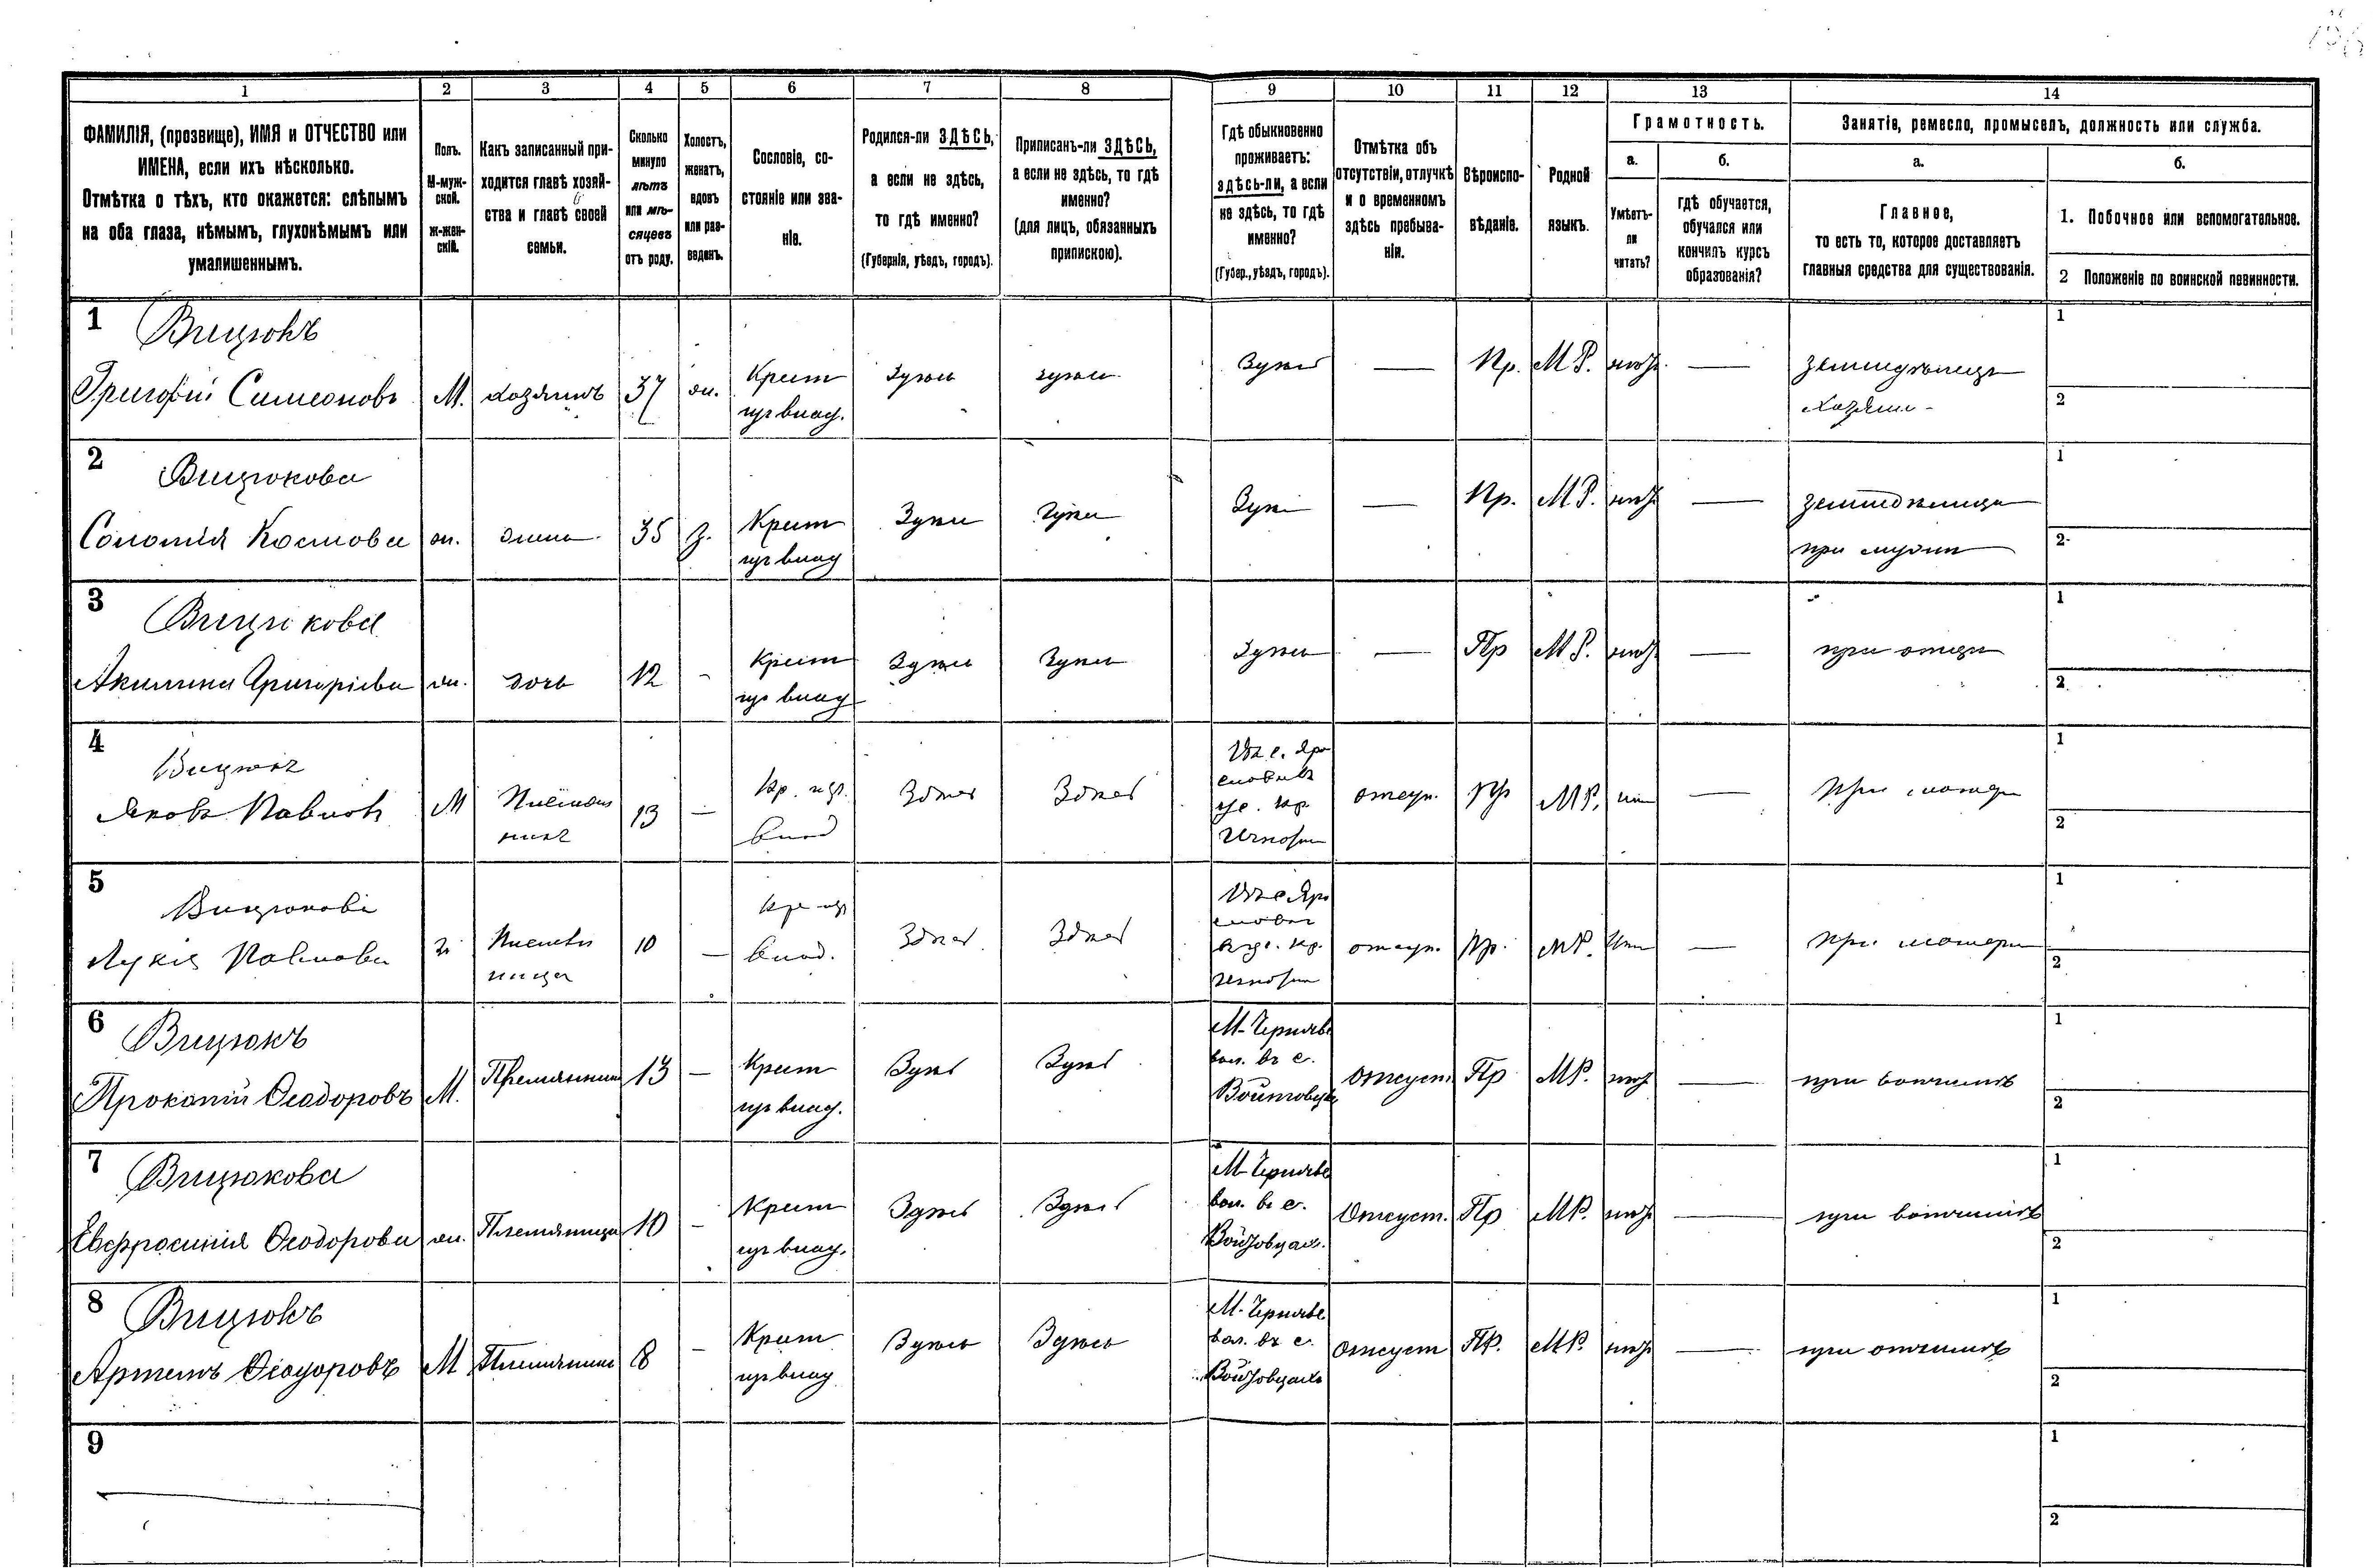 1 2 3 4 5 6 7 8 9 10 11 12 13 14
ФАМИЛІЯ, (прозвище), ИМЯ и ОТЧЕСТВО или
ИМЕНА, если ихъ нѣсколько.
Отмѣтка о тѣхъ, кто окажется: слѣпымъ
на оба глаза, нѣмымъ, глухонѣмымъ или
умалишеннымъ.
Полъ.
М-муж-
ской.
ж-жен-
скій.
Какъ записанный при-
ходится главѣ хозяй-
ства и главѣ своей
семьи.
Сколько
минуло
лѣтъ
или мѣ-
сяцевъ
отъ роду.
Холостъ,
женатъ,
вдовъ
или раз-
веденъ.
Сословіе, со-
стояніе или зва-
ніе.
Родился-ли ЗДѢСЬ,
а если не здѣсь,
то гдѣ именно?
(Губернія, уѣздъ, городъ).
Приписанъ-ли ЗДѢСЬ,
а если не здѣсь, то гдѣ
именно?
(для лицъ, обязанныхъ
припискою).
Гдѣ обыкновенно
проживаетъ:
здѣсь-ли, а если
не здѣсь, то гдѣ
именно?
(Губер., уѣздъ, городъ).
Отмѣтка объ
отсутствіи, отлучкѣ
и о временномъ
здѣсь пребыва-
ніи.
Вѣроиспо-
вѣданіе.
Родной
языкъ.
Грамотность.
а.
Умѣетъ-
ли
читать?
б.
гдѣ обучается,
обучался или
кончилъ курсъ
образованія?
Занятіе, ремесло, промыселъ, должность или служба.
а.
Главное,
то есть то, которое доставляетъ
главныя средства для существованія.
б.
1. Побочное или вспомогательное.
2 Положеніе по воинской повинности.
1
Вицюкъ
Григорій Симеоновъ М. хозяинъ 37 ж.
Крест
изъ влад.
здѣсь здѣсь
здѣсь — Пр. М.Р. нѣтъ —
земледѣлецъ
хозяин
1
2
2
Вицюкова
Соломія Космова ж. жена 35 з.
Крест
изъ влад
здѣсь здѣсь
Здѣсь — Пр. М.Р. нѣтъ —
при мужи
1
2
3
Вицюкова
Акилина Григоріева ж. дочь 12 -
Крест
изъ влад
здѣсь здѣсь
Здѣсь — Пр М.Р. нѣтъ —
при отцѣ
1
2
4
Вицюкъ
Яковъ Павловъ М
Племян
никъ
13 —
Кр. изъ
влад
Здѣсь Здѣсь
отсут. Пр МР. нѣт —
1
2
5
Вицюкова
Лукія Павлова ж
Племян
ница
10 —
Кр. изъ
влад.
Здѣсь Здѣсь
отсут. Пр. МР. нѣт —
при матери
1
2
6
Вицюкъ
Прокопій Ѳеодоровъ М. Племянник 13 —
Крест
изъ влад.
Здѣсь Здѣсь
М-Черняв
вол. въ с.
Войтовцах
Отсуст. Пр МР. нѣтъ —
при вотчимѣ
1
2
7
Вицюкова
Евфросинія Ѳеодорова ж. Племяница 10 -
Крест
изъ влад.
Здѣсь Здѣсь
М-Черняв
вол. въ с.
Войтовцах.
Отсуст. Пр МР. нѣтъ —
при вотчимѣ
1
2
8
Вицюкъ
Артемъ Ѳеодоровъ М Племянник 8 -
Крест
изъ влад
Здѣсь Здѣсь
М-Черняв
вол. въ с.
Войтовцахъ
Отсуст ПР. МР. нѣтъ —
при отчимѣ
1
2
9
1
2